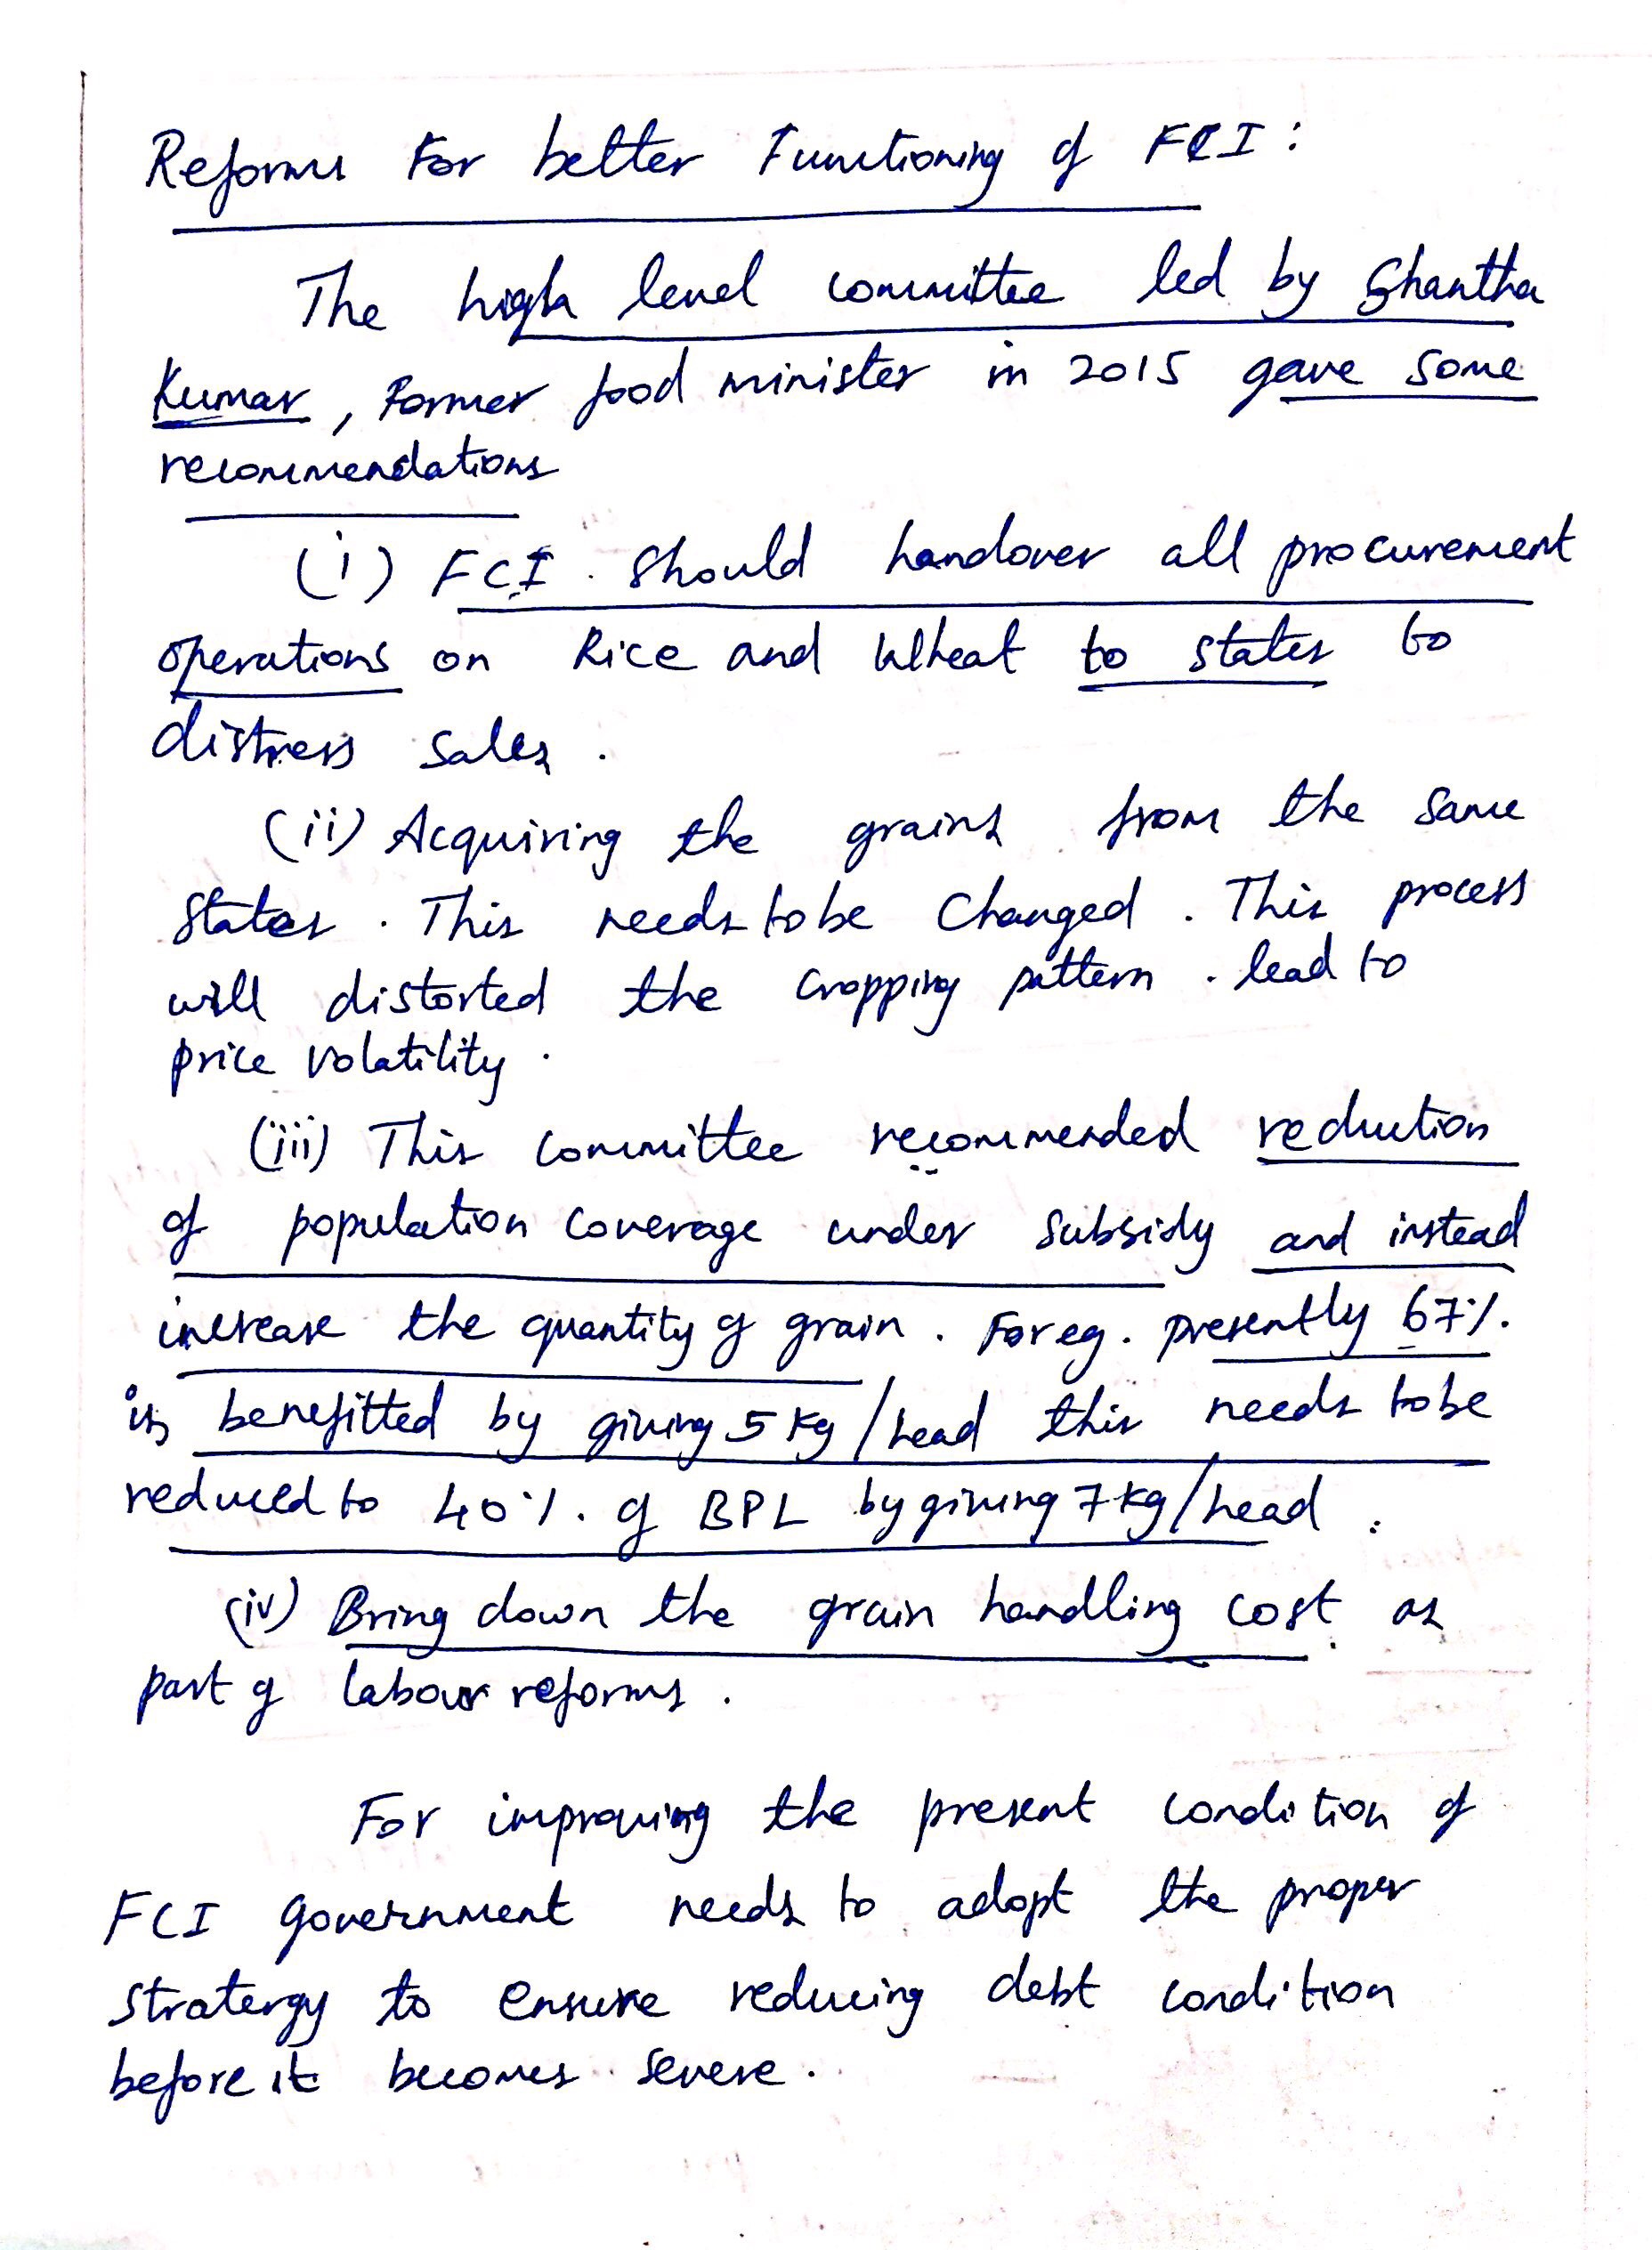 Reforms For better Functioning of FCI :
The high level committee led by Shantha
Kumar , Former food minister in 2015 gave some
recommendations
(i) FCI . Should handover all procurement
operations on Rice and Wheat to states to
distress sales .
(ii) Acquiring the grains from the same
States . This needs to be Changed . This process
will distorted the Cropping pattern . lead to
price volatility .
(iii) This Committee recommended reduction
of population Coverage under subsidy and instead
increase the quantity of grain . For eg . presently 67%.
is benefitted by giving 5 Kg / head this needs to be
reduced to 40%. of BPL by giving 7 kg / head .
(iv) Bring down the grain handling cost as
part of labour reforms .
For improving the present condition of
FCI government needs to adopt the proper
stratergy to ensure reducing debt condition
before it becomes severe .